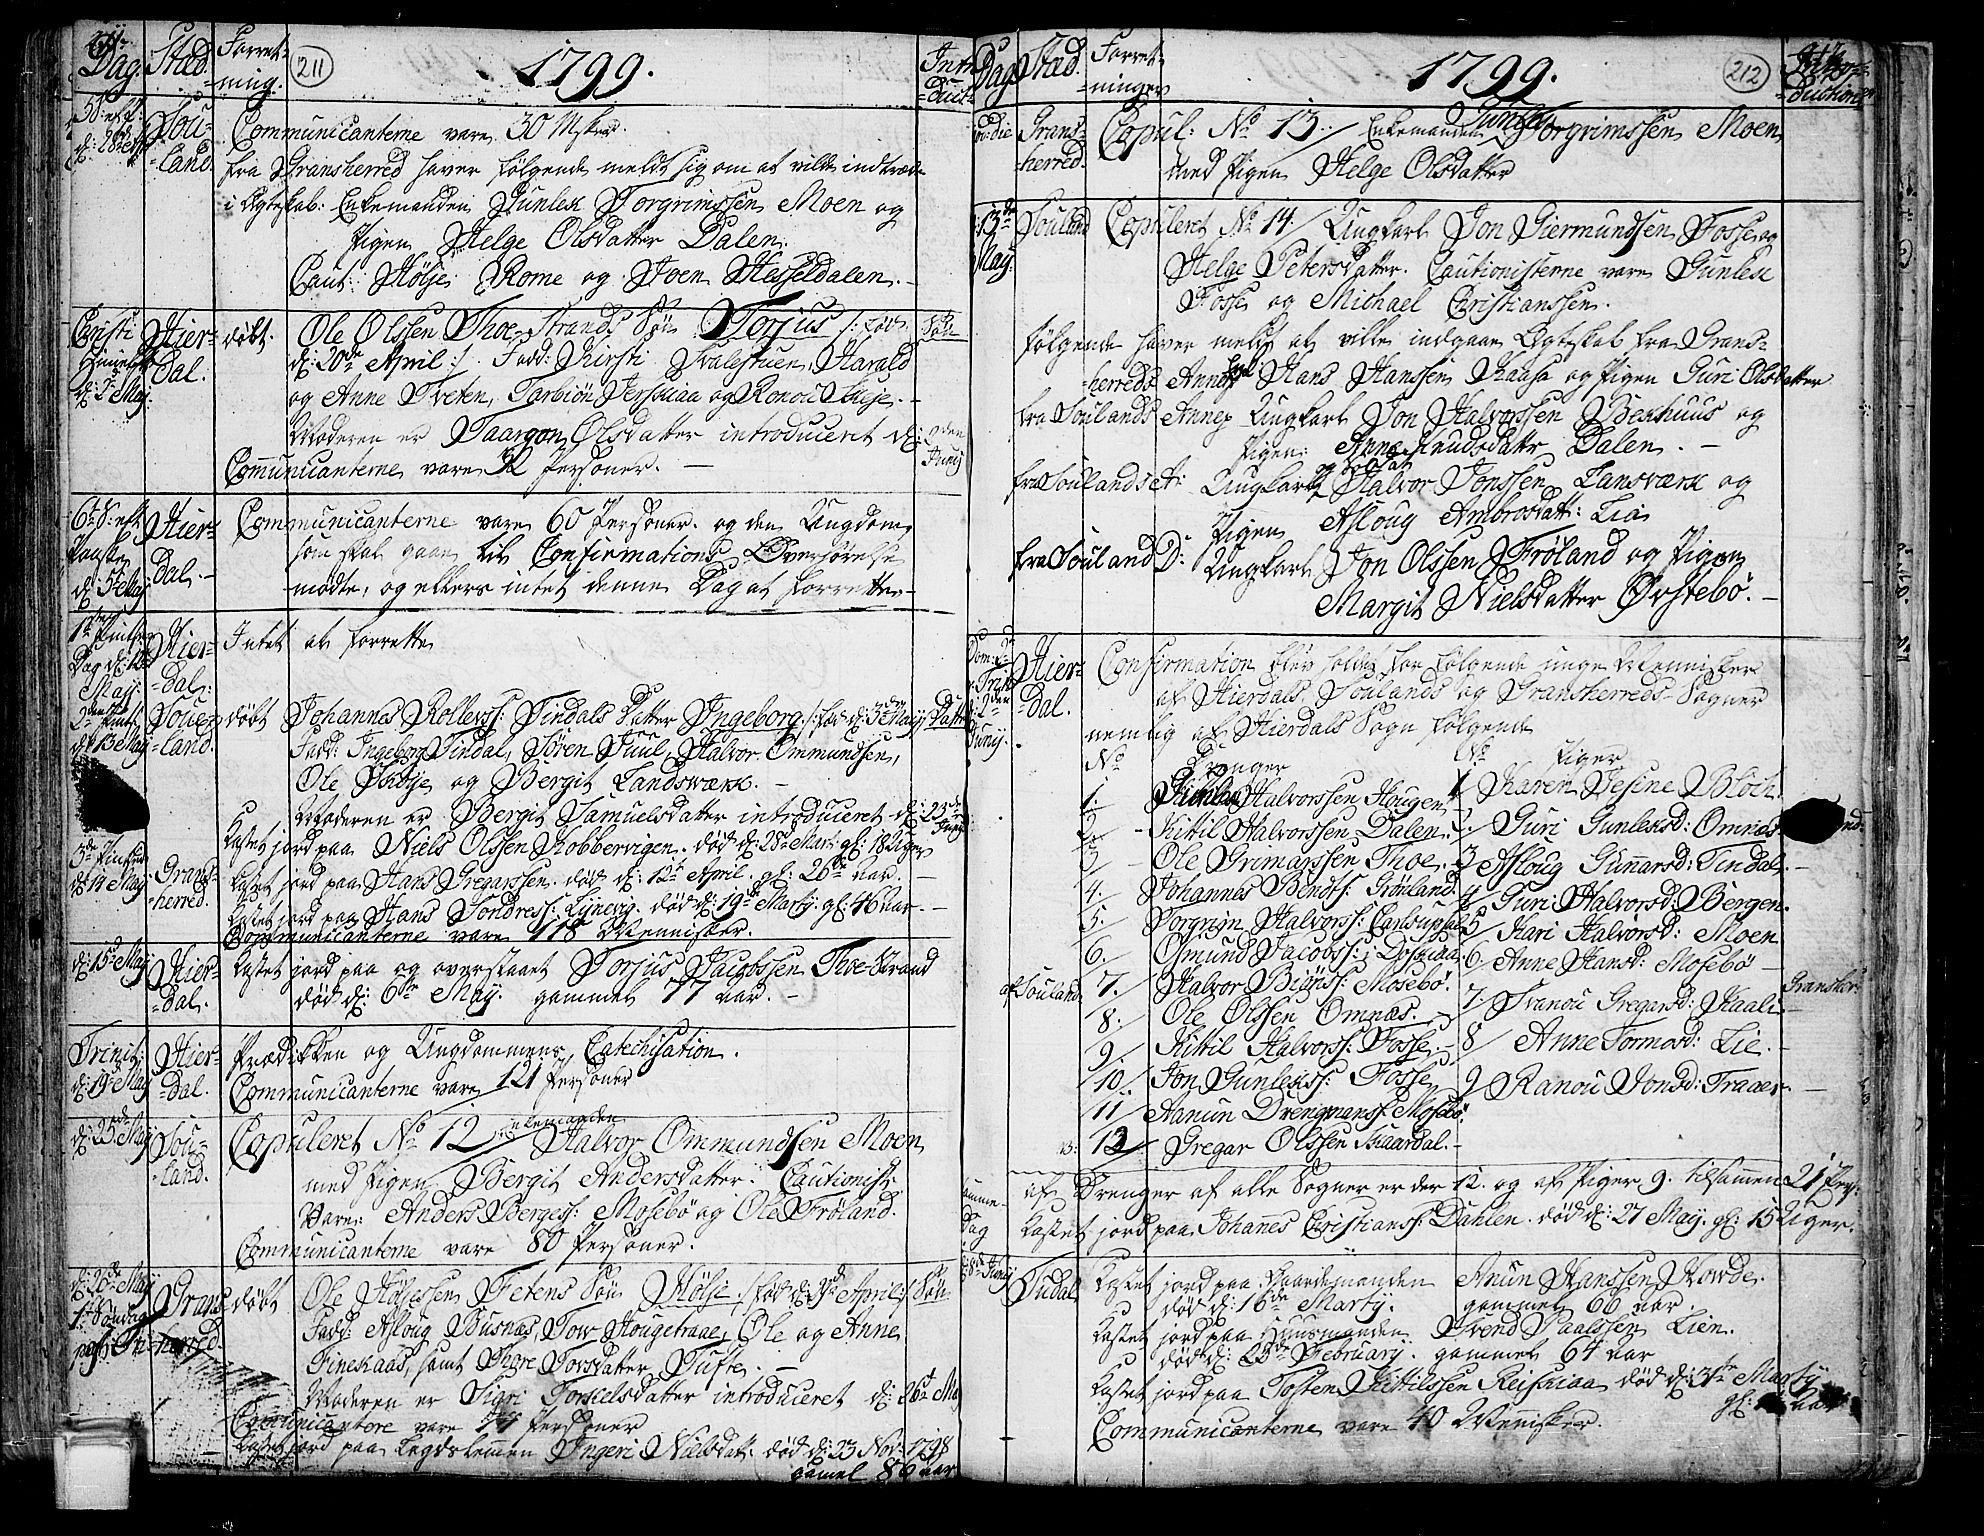 211
Dag. Stæd. Forret-
-ning.
1799.
Intro
-duct-
5 S: eft:
Sou-
-land.
Communicanterne vare 30 Msker.
fra Gransherred haver følgende meldt sig om at ville indtræde
i Ægteskab: Enkemanden Gunlek Torgrimssen Moen og
Pigen Helge Olsdatter Dalen.
Caut: Hølje Rome og Joen Hesseldalen.
Christi
Himmelf
d: 2 May.
Hier-
dal.
døbt.
Ole Olssen Thoe-Strands Søn Torjus /: fød
d: 20de April :/ Fadd: Kirsti Harald
og Anne Tveten, Tarbiön Jerskaa og Ronou Skeje.
Moderen er Taaran Olsdatter introduceret d:
Juny
Søn
Communicanterne vare Personer.
6te S: eft
Paaske
d: 5te May
Hier-
dal.
Communicanterne vare 60 Personer. og den Ungdom,
som skal gaae til Confirmations Overhørelse
mødte, og ellers intet denne Dag at forrette.
1ste Pintse
Dag d: 12
May.
Hier-
-dal.
Intet at forrette
2den Pints
d: 13 May
Soue-
-land.
døbt
Johannes Rollefss: Tindals Datter Ingeborg /: fød d: 3 May Datt
Fadd: Ingeborg Tindal, Søren Juul, Halvor Ommundsen,
Ole Øhtje og Bergit Landsværk.
Moderen er Bergit Samuelsdatter introduceret d: 23de
Juny
Kastet jord paa Niels Olssen Kobbervigen. død d: 28de Mart: gl: 18 Uger
3de Pintse
d: 14 May
Grans-
-herred.
Kastet jord paa Hans Gregarssen. død d: 12te April. gl: 26 aar.
Kastet jord paa Hans Sondress: Lynevig. død d: 19de Marty. gl: 46 aar.
Communicanterne vare 118 Mennisker.
d: 15de May
Hier-
dal.
Kastet jord paa og overstaaet Torjus Jacobssen Thoe-Strand
død d: 6te May. gammel 77 aar.
Trinit:
d: 19de May
Hier-
-dal.
Prædikken og Ungdommens Catechisation.
Communicanterne vare 121 Personer
Sou-
-land.
Copuleret No 12 / Enkemanden Halvor Ommundssen Moen
med Pigen Bergit Andersdatter. Cautionist:
vare: Anders Bergess: Mosebø og Ole Frøland.
Communicanterne vare 80 Personer.
d: 26de May
1te Søndag
post Tri-
Grans
-herred.
døbt
Ole Høljessen Fetens Søn Hølje /: fød d: April :/ Søn
Fadd: Asloug Busnæs, Tow Hougetraae, Ole og Anne
Finekaas, samt Thore Torsdatter Tufte.
Moderen er Sigri Torkelsdatter introduceret d: 26de May
Communicantere vare Personer
Kastet jord paa Lægdslemen Ingeri Nielsdatt: død d: 23 Nov: 1798
gamel 86 aar
212
Dag Stæd. Forret-
-ninger
1799.
Intro-
-duction
Grans-
herred.
Copul: No 13 / Enkemanden Gunlek Torgrimssen Moen
med Pigen Helge Olsdatter
13de
May.
Souland
Copuleret No 14 / Ungkarl Jon Giermundsen Fosse og
Helge Petersdatter. Cautionisterne vare Gunlek
Fosse og Michael Christianssen.
følgende haver meldt at ville indgaae Ægteskab fra Grans-
-herreds Annex Hans Hanssen Kaasa og Pigen Guri Olsdatter
fra Soulands Annex Ungkarl Jon Halvorssen Bekhuus og
Pigen: Anne Knudsdatter Dalen.
fra Soulands A: Ungkarl Halvor Jonssen Lansværk og
Pigen Asloug Ambrosdatt: Lia
fra Souland D: Ungkarl Jon Olssen Frøland og Pigen
Margit Nielsdatter Ørstebø.
Dom: 2
Trin
d: 2den
Juny.
Hier-
-dal.
Confirmation blev holdt for følgende unge Mennisker
af Hierdals, Soulands og Gransherreds Sogner
nemlig af Hierdals Sogn følgende
No Drenger No Piger
1. Halvorssen Hougen 1 Karen Jesine Bloch
2 Kittil Halvorssen Dalen. 2 Guri Gunleksd: Omnæs
3 Ole Grimarssen Thoe. 3 Asloug Gunnarsd: Tindal.
4. Johannes Bendts: Grønland 4 Guri Halvorsd: Bergen.
5. Torgrim Halvorss: 5 Kari Halvorsd: Moen
6. Osmund Jacobss: 6. Anne Hansd: Mosebø
af Souland 7. Halvor Biörns: Mosebø. 7. Svanou Gregarsd: Kaali. Gransher:
8. Ole Olssen Omnæs. 8 Anne Tormosd: Lie.
9. Kittil Halvorss: Fosse. 9 Ranou Jonsd: Traaer.
10. Jon Gunlekss: Fosse
11 Aanun Drengmanss: Mosebø
12 Gregar Olssen Skaardal.
af Drenger af alle Sogner er der 12. og af Piger 9. tilsammen 21 Pers:
samme
Dag
Kastet jord paa Johanes Christianss: Dahlen. død d: 27 May. gl: 15 Uger.
Juny
Tudal
Kastet jord paa Gaardmanden Anun Hanssen Hovde.
død d: 16de Marty. gammel 66 aar.
Kastet jord paa Huusmanden Svend Paalssen Lien.
død d: February. gammel 64 aar
Kastet jord paa Tosten Kittilssen Reiskiaa død d: Marty
gl: aar
Communicanterne vare 40 Mennisker.